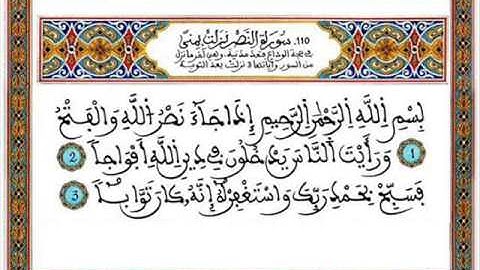 110. سورة النصر نزلت بمنى
في حجة الوداع فتعد مدنية وهي آخر ما نزل
من السور وآياتها 3 نزلت بعد التوبة
بِسْمِ اللَّهِ الرَّحْمَٰنِ الرَّحِيمِ إِذَا جَآءَ نَصْرُ اللَّهِ وَالْفَتْحُ
1 وَرَأَيْتَ النَّاسَ يَدْخُلُونَ فِي دِينِ اللَّهِ أَفْوَاجاً 2
فَسَبِّحْ بِحَمْدِ رَبِّكَ وَاسْتَغْفِرْهُ إِنَّهُ كَانَ تَوَّاباً 3